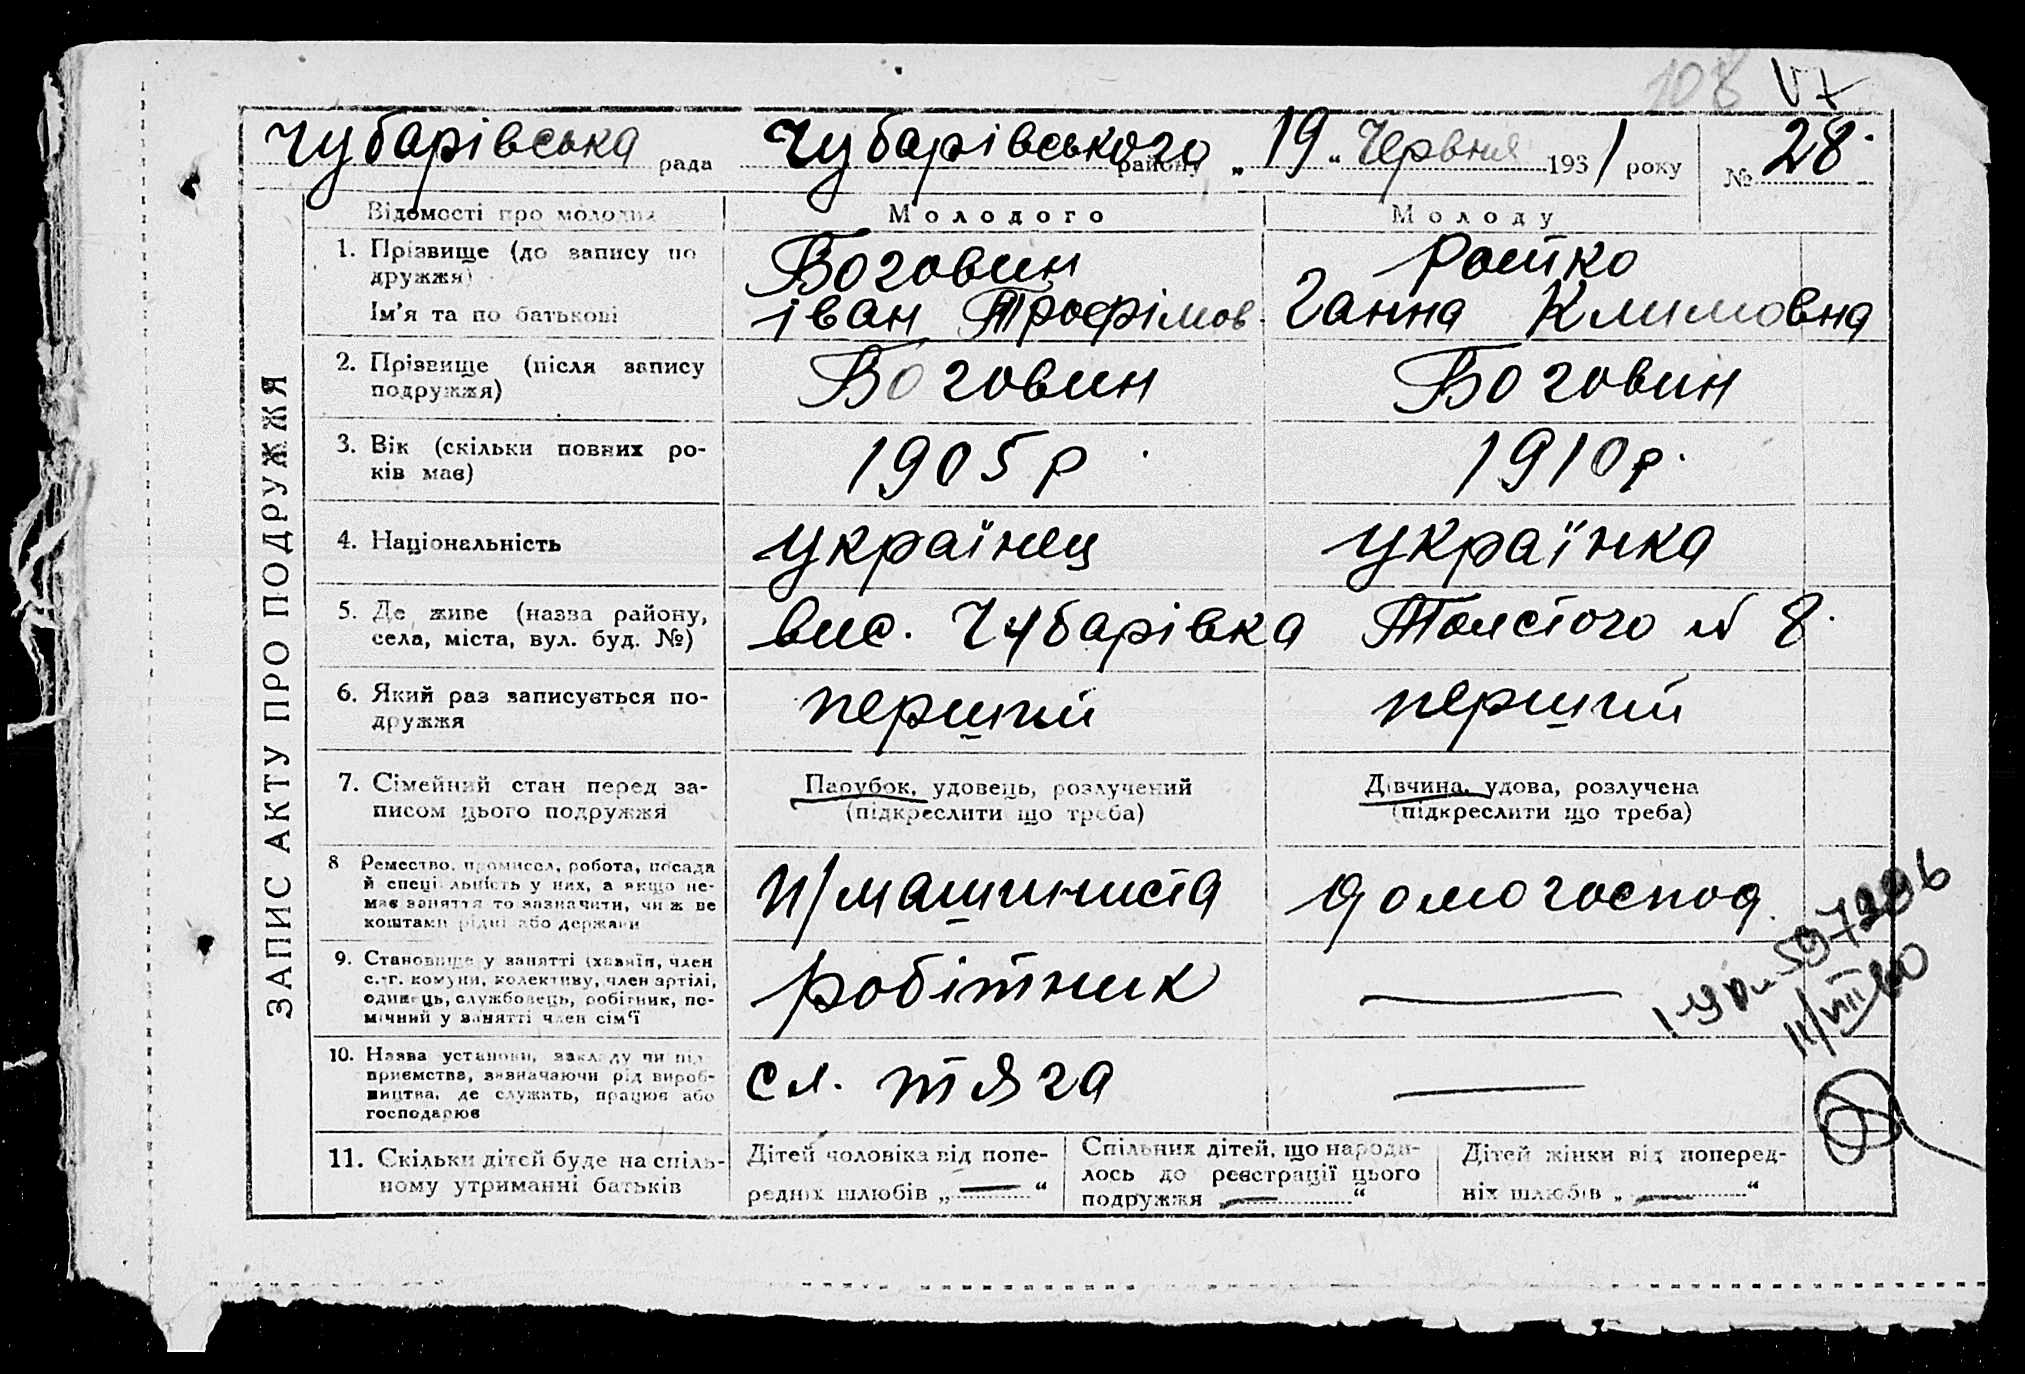 108 V7
Чубарівська рада Чубарівського району „19“ Червня 1931 року № 28.
ЗАПИС АКТУ ПРО ПОДРУЖЖЯ
Відомості про молодих Молодого Молоду
1. Прізвище (до запису по Боговин Рошко
дружжя)
Ім'я та по батькові Іван Трофімов. Ганна Климовна
2. Прізвище (після запису Боговин Боговин
подружжя)
3. Вік (скільки повних ро- 1905 р. 1910 р.
ків має)
4. Національність українец українка
5. Де живе (назва району, вис. Чубарівка Толстого № 8.
села, міста, вул. буд. №)
6. Який раз записується по- перший перший
дружжя
7. Сімейний стан перед за- Парубок, удовець, розлучений Дівчина, удова, розлучена
писом цього подружжя (підкреслити що треба) (підкреслити що треба)
8 Ремество, промисел, робота, посада
й спеціальність у них, а якщо не- п/машиниста домогоспод.
має заняття то зазначити, чи ж не
коштами рідні або держави
9. Становище у занятті (хазяїн, член
с.-г. комуни, колективу, член артілі, робітник
одинець, службовець, робітник, по-
мічний у занятті член сім'ї
10. Назва установи, закладу чи під-
приємства, зазначаючи рід вироб- сл. тяга
ництва, де служить, працює або
господарює
11. Скільки дітей буде на спіль- Дітей чоловіка від попе- Спільних дітей, що народи- Дітей жінки від поперед-
ному утриманні батьків редніх шлюбів „—“ лось до реєстрації цього ніх шлюбів „—“
подружжя „—“
11/VIII 60